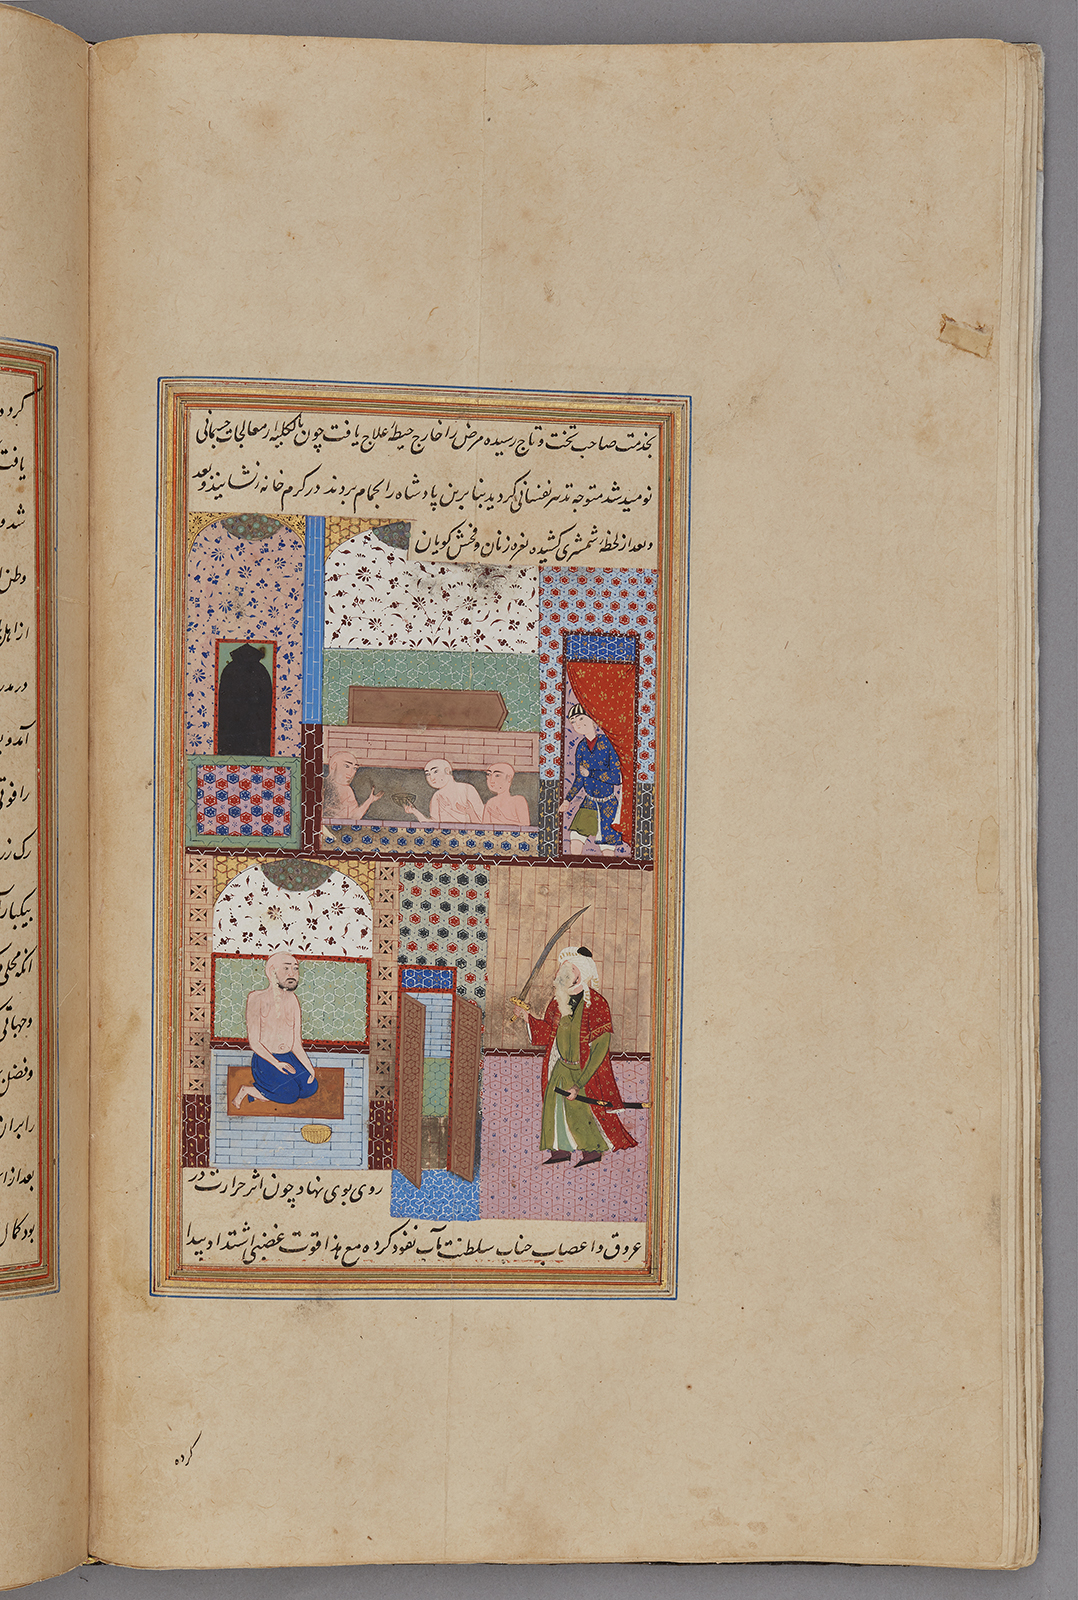 بخدمت صاحب تخت و تاج رسیده مرض را خارج حیطهٔ علاج یافت چون بالکلیه از معالجات جسمانی
نومید شد متوجه تدبیر نفسانی کردید بنابرین پادشاه را بحمام بردند در کرم خانه نشانیدند و بعد
و بعد از لحظهٔ شمشیری کشیده نعره زنان و فحش کویان
روی بوی نهاد چون اثر حرارت در
عروق و اعصاب جناب سلطنت مآب نفوذ کرده مع هذا قوت غضبی اشتداد پیدا
کرده
کرده
یافت
شد و
وطن
از اهل
در مدر
آمد و
را فوتی
رک زر
بیکبار
آنکه محلی
و جهاتی
و فضل
را بران
بعد از
بود کمال